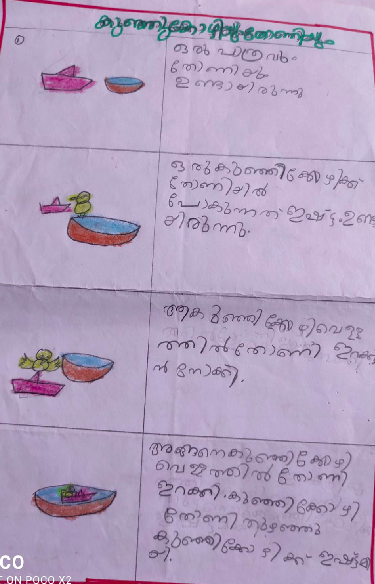 കുഞ്ഞികോഴിയുംതോണിയും
①
ഒരു പാത്രവും
തോണിയും
ഉണ്ടായിരുന്നു
ഒരുകുഞ്ഞിക്കോഴിക്ക്
തോണിയിൽ
പോകുന്നത് ഇഷ്ട്ടംഉണ്ടാ
യിരുന്നു.
ആകുഞ്ഞിക്കോഴിവെള്ള
ത്തിൽതോണി ഇറക്കാ
ൻനോക്കി.
അങ്ങനെകുഞ്ഞിക്കോഴി
വെള്ളത്തിൽ തോണി
ഇറക്കി.കുഞ്ഞിക്കോഴി
തോണി തുഴഞ്ഞു
കുഞ്ഞിക്കോഴിക്ക് ഇഷ്ട്ടമാ
യി.
CO
T ON POCO X2